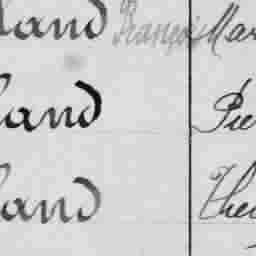 land François Mar
land Pie
land The